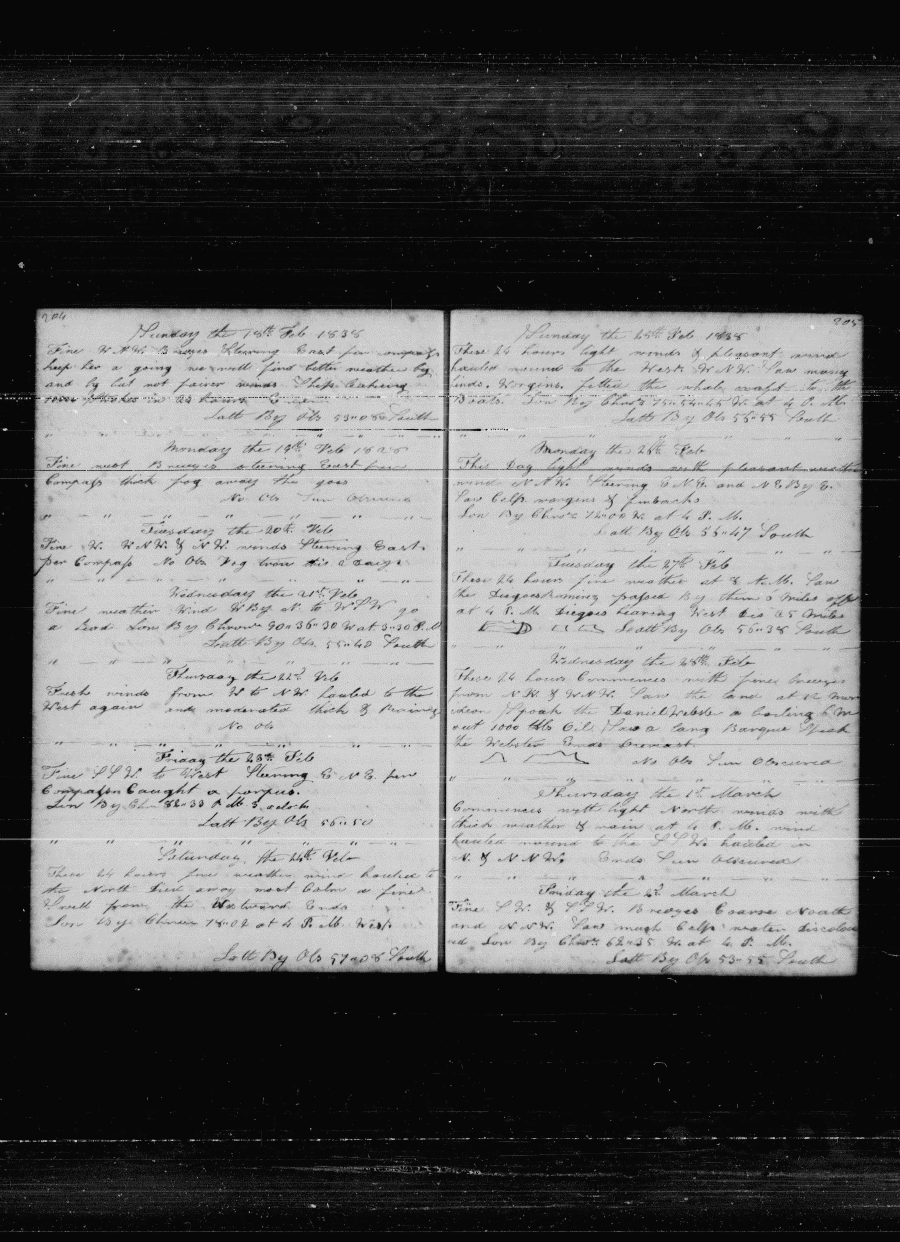 204
Sunday the 18th Feb 1838
Fine W.N.W. Breezes Steering East per compass
keep her a going we will find better weather by
and by but not fairer winds Ship
in 24 hours
Latt By Obs 53"08 South
Monday the 19th Feb 1838
Fine west Breezes steering East per
Compass thick fog away she goes
No Obs Sun Obscured
Tuesday the 20th Feb
Fine W. WNW. & NW. winds Steering East
per Compass No Obs
Wednesday the 21st Feb
Fine weather Wind W By N. to WSW go
a Lon By Chron 90"36"30 W at 3"30 P.M
Latt By Obs 55"40 South
Thursday the 22d Feb
Fresh winds from W to NW hauled to the
West again and moderated thick &
No Obs
Friday the 23th Feb
Fine SSW. to West Steering E N E. per
Compass Caught a porpus.
Lon By Chr 82"33 P.M. 3 oclock
Latt By Obs 56"50
Saturday the 24th Feb
These 24 hours fine weather wind hauled to
the North Died away most Calm a fine
Swell from the Westward Ends
Lon By Chron 78"02 at 4 P.M. West.
Latt By Obs 57"08 South
205
Sunday the 25th Feb 1838
These 24 hours light winds & pleasant wind
hauled round to the West W NW. Saw many
birds. the whole to the
Lon By Chron 75"54"45 W. at 4 P.M.
Latt By Obs 56"58 South
Monday the 26th Feb
This Day light winds with pleasant weather
wind N.N.W. Steering E.N.E. and N.E. By E.
Saw Celp & finbacks
Lon By Chron 72"00 W. at 4 P.M.
Latt By Obs 55"47 South
Tuesday the 27th Feb
These 24 hours fine weather at 8 A.M. Saw
the Diegos Raminz passed By them 5 miles off
at 4 P.M. Diegos bearing West Dis 25 Miles
Latt By Obs 56"38 South
Wednesday the 28th Feb
These 24 hours Commences with fine breezes
from N.W & WNW. Saw the land at 12 Mer
idian Spoak the Daniel Webster a boiling 6 M
out 1000 bbls Oil Saw a larg Barque Speak
the Webster Ends
No Obs Sun Obscured
Thursday the 1st March
Commences with light North winds with
thick weather & rain at 4 P.M. wind
hauled round to the SSW. hauled in
N. & NNW. Ends Sun Obscured
Friday the 2d March
Fine S.W. & SSW. Breezes Coarse North
and NNW. Saw much Celp water discolou
red Lon By Chron 62"35 W. at 4 P.M.
Latt By Obs 53"55 South